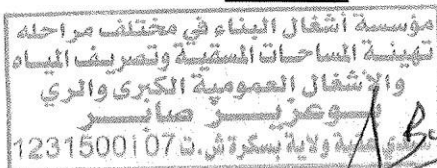 مؤسسة أشغال البناء في مختلف مراحله
تهيئة المساحات المسقية وتصريف المياه
والأشغال العمومية الكبرى والري
بوعزيز صابر
سيدي عقبة ولاية بسكرة ش.ت 1231500107